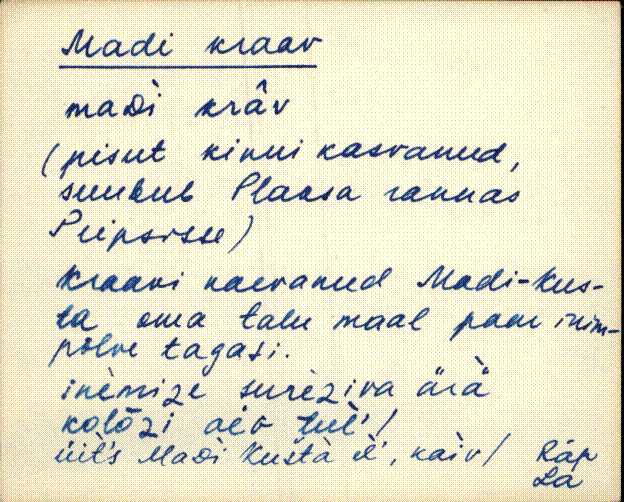 Madi kraav
maᴅì krâv
(pisut kinni kasvanud,
suubub Plaasa rannas
Peipsisse)
Kraavi kaevanud Madi-Kus-
ta oma talu maal paar inim-
põlve tagasi.
inèmize surèziva ärä
kolõzi aèv tuĺ!
üit̀s Maᴅì Kuštà eĺ, kaìv/ Räp
La